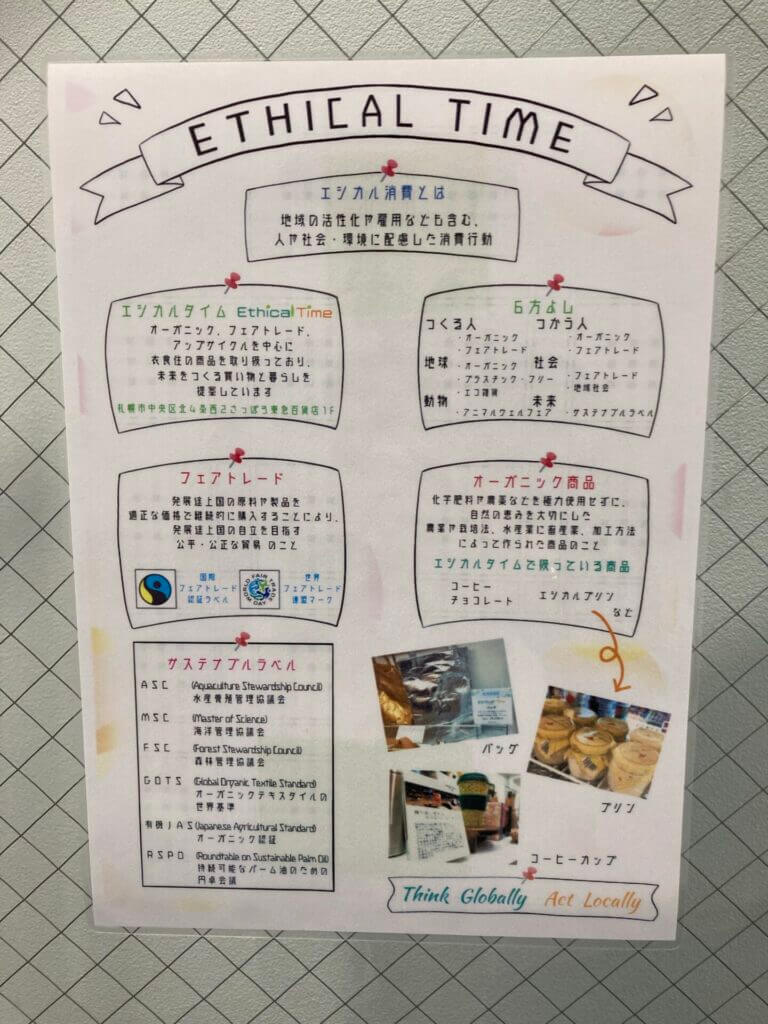 ETHICAL TIME
エシカル消費とは
地域の活性化や雇用なども含む、
人や社会・環境に配慮した消費行動
エシカルタイム Ethical Time
オーガニック、フェアトレード、
アップサイクルを中心に
衣食住の商品を取り扱っており、
未来をつくる買い物と暮らしを
提案しています
札幌市中央区北4条西2さっぽろ東急百貨店1F
6方よし
つくる人
・オーガニック
・フェアトレード
つかう人
・オーガニック
・フェアトレード
地球
・オーガニック
・プラスチック・フリー
・エコ雑貨
社会
・フェアトレード
・地域社会
動物
・アニマルウェルフェア
未来
・サステナブルラベル
フェアトレード
発展途上国の原料や製品を
適正な価格で継続的に購入することにより、
発展途上国の自立を目指す
公平・公正な貿易 のこと
国際
フェアトレード
認証ラベル
WORLD FAIR TRADE DAY
世界
フェアトレード
連盟マーク
オーガニック商品
化学肥料や農薬などを極力使用せずに、
自然の恵みを大切にした
農業や栽培法、水産業に畜産業、加工方法
によって作られた商品のこと
エシカルタイムで扱っている商品
コーヒー
チョコレート
エシカルプリン
など
サステナブルラベル
ASC (Aquaculture Stewardship Council)
水産養殖管理協議会
MSC (Master of Science)
海洋管理協議会
FSC (Forest Stewardship Council)
森林管理協議会
GOTS (Global Organic Textile Standard)
オーガニックテキスタイルの
世界基準
有機JAS (Japanese Agricultural Standard)
オーガニック認証
RSPO (Roundtable on Sustainable Palm Oil)
持続可能なパーム油のための
円卓会議
バッグ
プリン
コーヒーカップ
Think Globally Act Locally